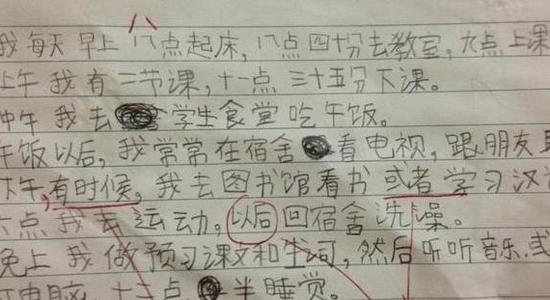 八
我每天早上八点起床,八点四十分去教室,九点上课
上午我有二节课,十一点三十五分下课。
中午我去学生食堂吃午饭。
午饭以后,我常常在宿舍看电视,跟朋友
下午,有时候。我去图书馆看书或者学习汉
六点我去运动,以后回宿舍洗澡。
晚上我做预习课文和生词,然后听听音乐.或
电脑,十二点半睡觉。